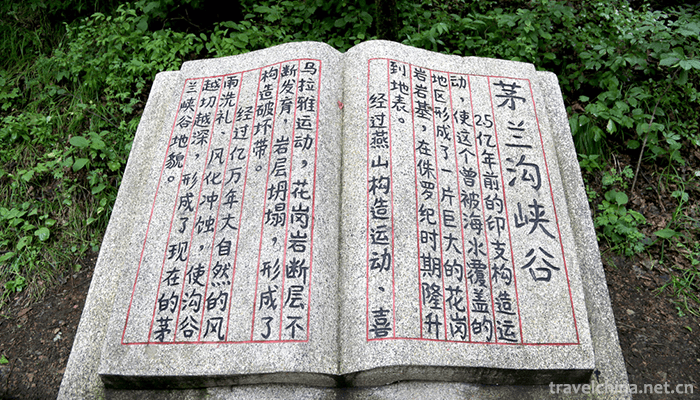 茅兰沟峡谷
2.5亿年前的印支构造运
动，使这个曾被海水覆盖的
地区形成了一片巨大的花岗
岩岩基，在侏罗纪时期隆升
到地表。
经过燕山构造运动、喜
马拉雅运动，花岗岩断层不
断发育，岩层坍塌，形成了
构造破坏带。
经过亿万年大自然的风
雨洗礼、风化冲蚀，使沟谷
越切越深，形成了现在的茅
兰峡谷地貌。
travelchina.net.cn